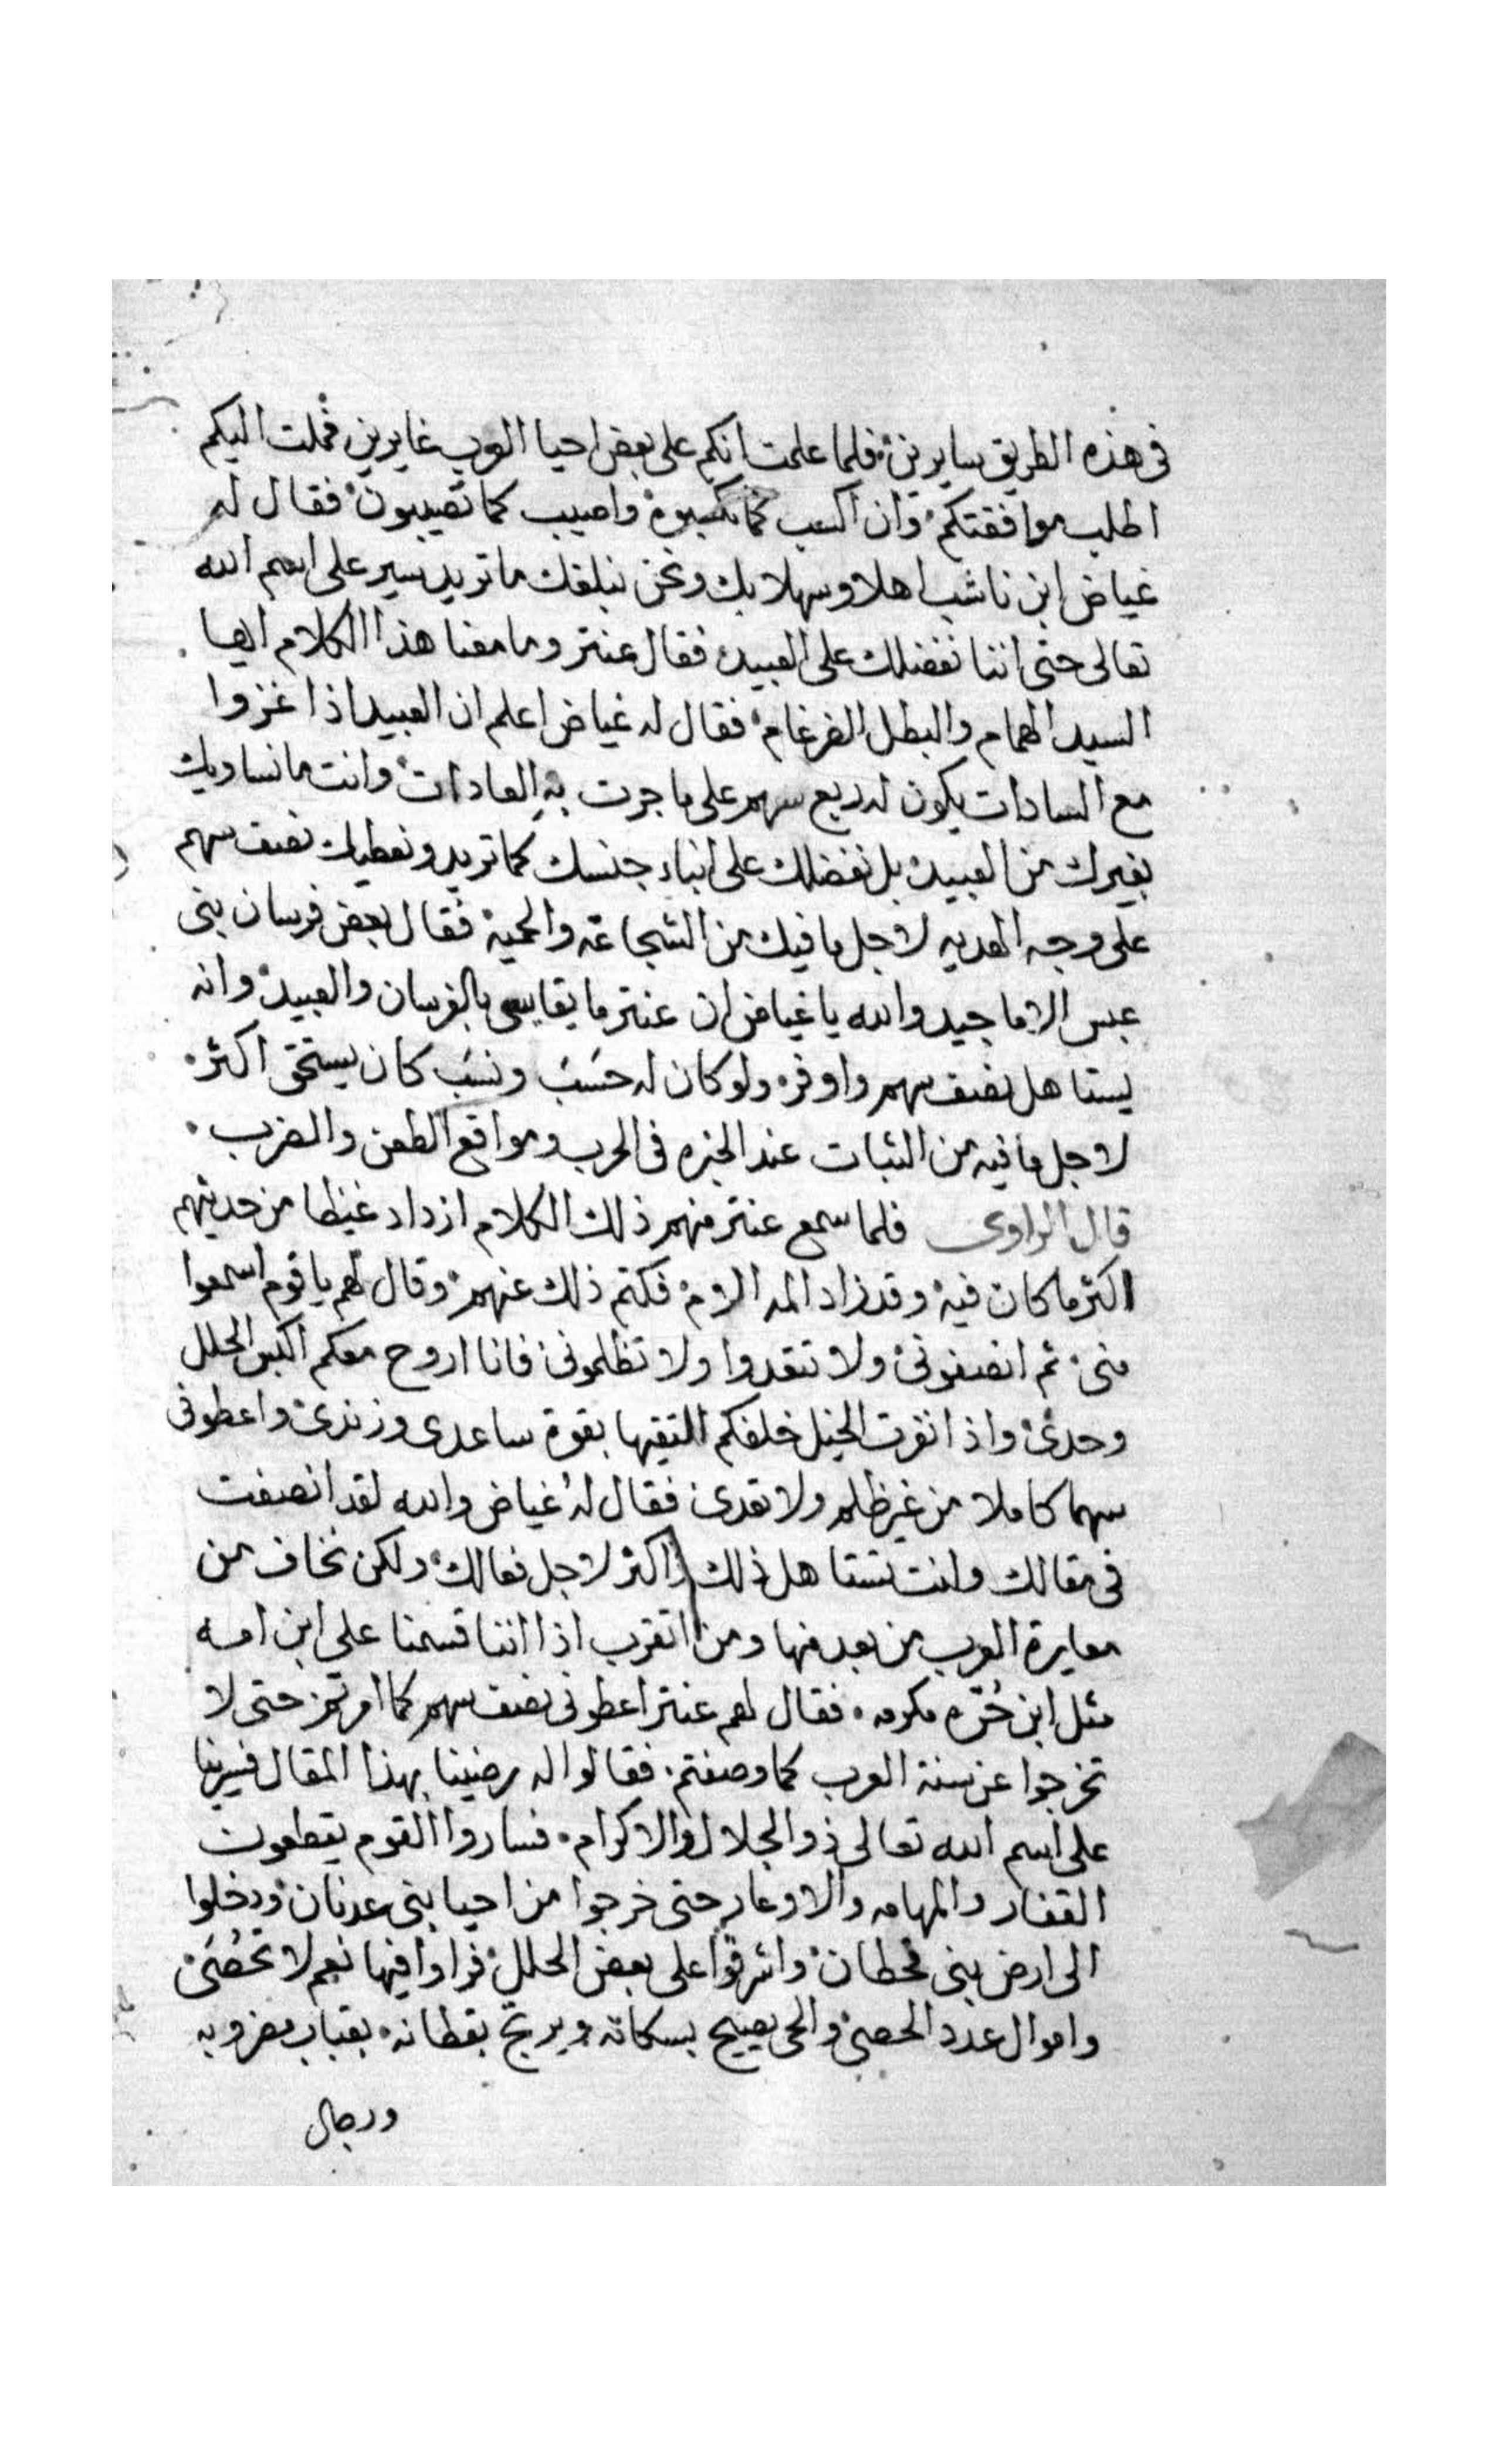 في هذه الطريق سايرين فلما علمت انكم على بعض احيا العرب غايرين فملت اليكم
اطلب موافقتكم وان اكسب كما تكسبوه واصيب كما تصيبون فقال له
غياض ابن ناشب اهلا وسهلا بك ونحن نبلغك ما تريد سير على اسم الله
تعالى حتى اننا نفضلك على العبيد فقال عنتر وما معنا هذا الكلام ايها
السيد الهمام والبطل الضرغام فقال له غياض اعلم ان العبيد اذا غزوا
مع السادات يكون له ربع سهم على ما جرت به العادات وانت ما نساويك
بغيرك من العبيد بل نفضلك على ابناء جنسك كما تريد ونعطيك نصف سهم
على وجه الهديه لاجل ما فيك من الشجاعه والحميه فقال بعض فرسان بني
عبس الاماجيد والله يا غياض ان عنتر ما يقايس بالفرسان والعبيد وانه
يستاهل نصف سهم واوفر ولو كان له حسَب ونسَب كان يستحق اكثر
لاجل ما فيه من الثبات عند الخبره في الحرب ومواقع الطعن والضرب
قال الراوى فلما سمع عنتر منهم ذلك الكلام ازداد غيظا من حديثهم
اكثر ما كان فيه وقد زاد المه الام فكتم ذلك عنهم وقال لهم يا قوم اسمعوا
منى ثم انصفونى ولا تتعدوا ولا تظلمونى فانا اروح معكم اكبس الحلل
وحدى واذا نفرت الخيل خلفكم التقيها بقوة ساعدى وزندى واعطونى
سهما كاملا من غير ظلم ولا تعدى فقال لهُ غياض والله لقد انصفت
في مقالك وانت تستاهل ذلك واكثر لاجل فعالك ولكن نخاف من
معايرة العرب من بعد منها ومن اتقرب اذا اننا قسمنا على ابن امه
مثل ابن حُرّه مكرمه فقال لهم عنتر اعطونى نصف سهم كما امرتم حتى لا
تخرجوا عن سنة العرب كما وصفتم فقالوا له رضينا بهذا المقال فسير بنا
على اسم الله تعالى ذو الجلال والاكرام فساروا القوم يقطعون
القفار والمهامه والاوعار حتى خرجوا من احيا بنى عدنان ودخلوا
الى ارض بنى قحطان واشرفوا على بعض الحلل فراوا فيها نعم لا تحُصَى
واموال عدد الحصى والحى يصيح بسكانه ويرتج بقطانه بقباب مضروبه
ورجال